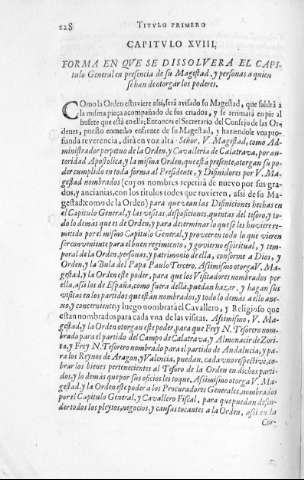 228 TITVLO PRIMERO
CAPITVLO XVIII,
FORMA EN QVE SE DISSOLVERA EL CAPI-
tulo General en presencia de su Magestad, y personas a quien
se han de otorgar los poderes.
COmo la Orden estuviere assi, será avisado su Magestad, que saldrà a
la misma pieça acompañado de sus criados, y se arrimarà en pie al
bufete que està en ella; Entonces el Secretario del Consejo de las Or-
denes, puesto en medio enfrente de su Magestad, y haziendole vna pro-
funda reverencia, dirà en voz alta: Señor, V. Magestad, como Ad-
ministrador perpetuo de la Orden, y Cavalleria de Calatrava, por au-
toridad Apostolica, y la misma Orden, que està presente, otorgan su po-
der cumplido en toda forma al Presidente, y Difinidores por V. Ma-
gestad nombrados (cuyos nombres repetirà de nuevo por sus gra-
dos, y ancianias, con los titulos todos que tuvieren, assi de su Ma-
gestad como de la Orden) para que vean las Difiniciones hechas en
el Capitulo General, y las visitas, disposiciones, quentas del tesoro, y to-
do lo demàs que es de Orden, y para determinar lo que se les huviere re-
metido por el mismo Capitulo General, y proveer en todo lo que vieren
ser conveniente para el buen regimiento, y govierno espiritual, y tem-
poral de la Orden, personas, y patrimonio de ella, conforme a Dios, y
Orden, y la Bula del Papa Paulo Tercero. Assimismo otorga V. Ma-
gestad, y la Orden este poder, para que los Visitadores nombrados por
ella, assi los de España, como fuera della, puedan hazer, y hagan sus
visitas en los partidos que estàn nombrados, y todo lo demàs a ello ane-
xo, y concerniente; y luego nombrarà el Cavallero, y Religioso que
estàn nombrados para cada vna de las visitas. Assimismo, V. Ma-
gestad, y la Orden otorgan este poder, para que Frey N. Tesorero nom-
brado para el partido del Campo de Calatrava, y Almonacir de Zori-
ta, y Frey N. Tesorero nombrado para el partido de Andaluzia, y pa-
ra los Reynos de Aragon, y Valencia, puedan, cada vno respectivè, co-
brar los bienes pertenecientes al Tesoro de la Orden en dichos parti-
dos, y lo demàs que por sus oficios les toque. Assimismo otorga V. Ma-
gestad, y la Orden este poder a los Procuradores Generales, nombrados
por el Capitulo General, y Cavallero Fiscal, para que puedan defen-
der todos los pleytos, negocios, y causas tocantes a la Orden, assi en la
Cor-